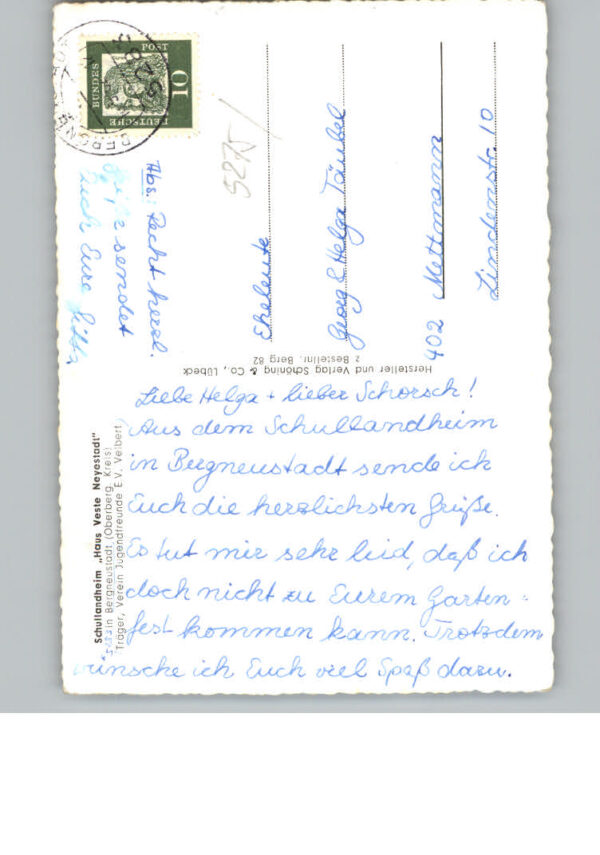 Schullandheim „Haus Veste Neyestadt"
in Bergneustadt (Oberberg. Kreis)
Träger, Verein Jugendfreunde E.V. Velbert
Liebe Helga + lieber Schorsch!
Aus dem Schullandheim
in Bergneustadt sende ich
Euch die herzlichsten Grüße.
Es tut mir sehr leid, daß ich
doch nicht zu Eurem Garten-
fest kommen kann. Trotzdem
wünsche ich Euch viel Spaß dazu.
Abs.: Recht herzl.
Grüße sendet
Euch Eure
Hersteller und Verlag Schöning & Co., Lübeck
z Bestellnr. Berg 82
DEUTSCHE
BUNDES
POST
10
5275
Eheleute
Georg & Helga Täubel
402 Mettmann
Lindenstr. 10